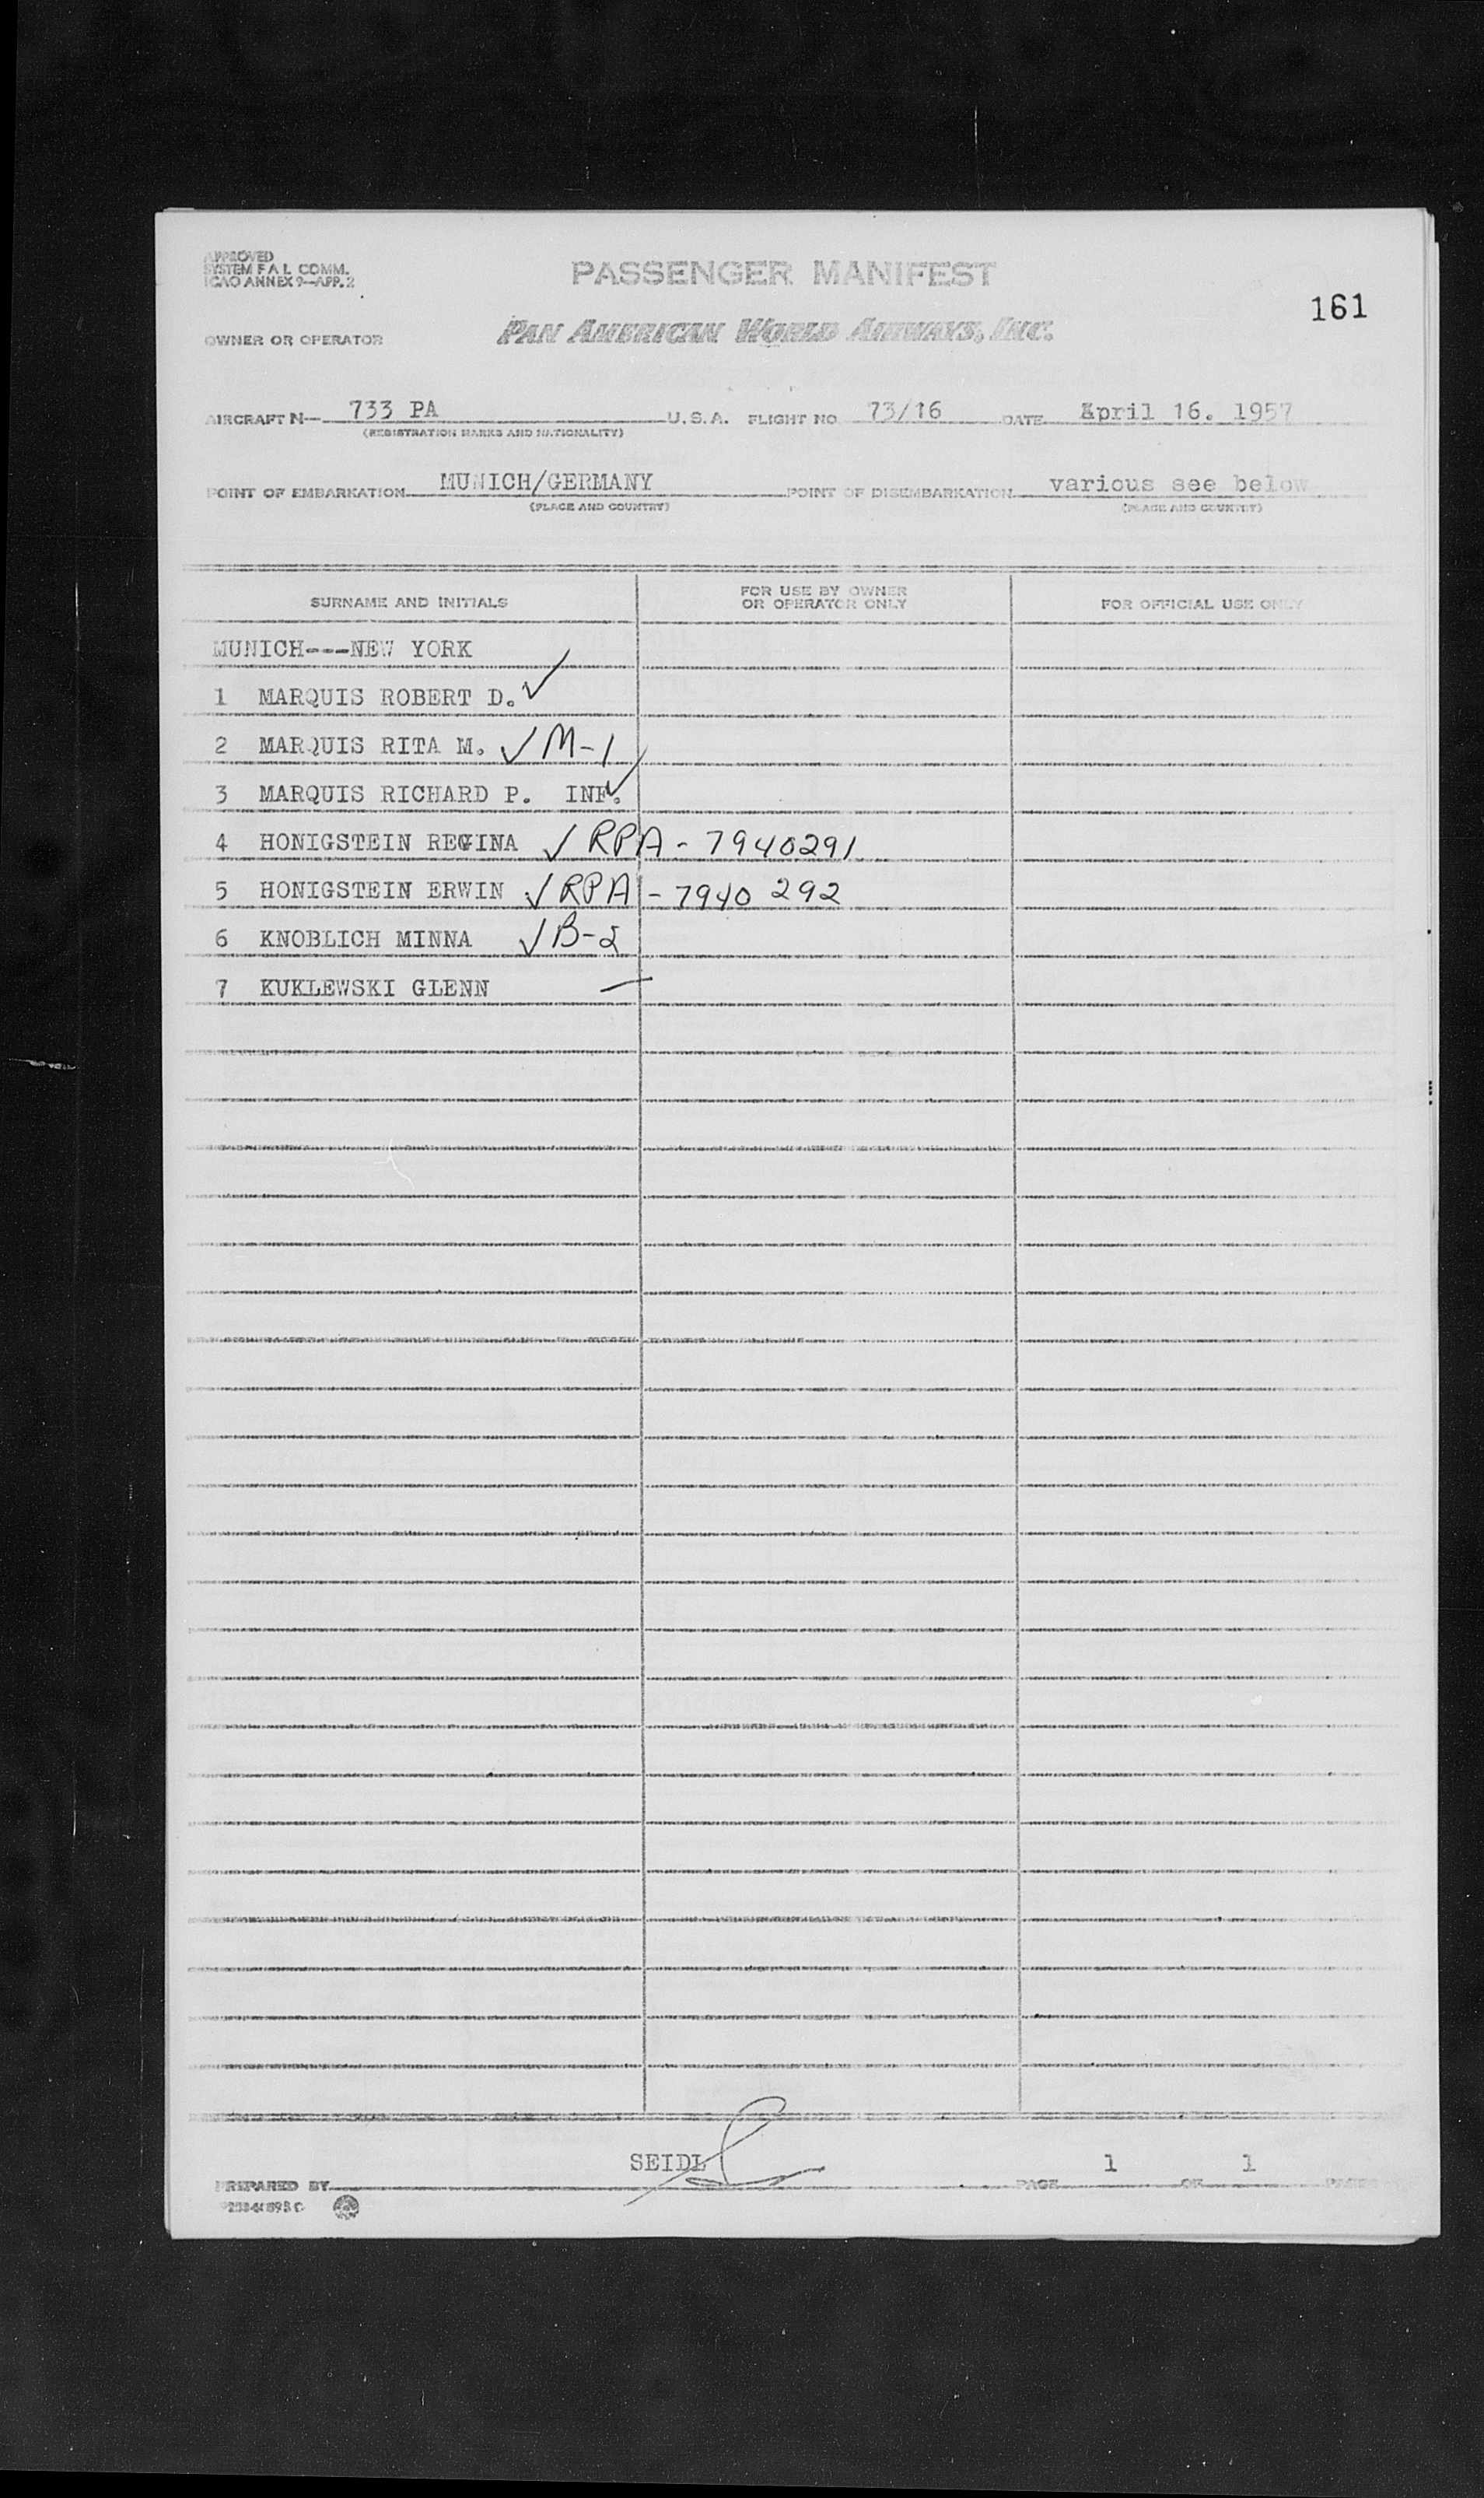 APPROVED
SYSTEM F A L COMM.
ICAO ANNEX 9—APP. 2
PASSENGER MANIFEST
161
OWNER OR OPERATOR PAN AMERICAN WORLD AIRWAYS, INC.
AIRCRAFT N— 733 PA U.S.A. FLIGHT NO 73/16 DATE April 16. 1957
(REGISTRATION MARKS AND NATIONALITY)
POINT OF EMBARKATION MUNICH/GERMANY POINT OF DISEMBARKATION various see below
(PLACE AND COUNTRY) (PLACE AND COUNTRY)
SURNAME AND INITIALS FOR USE BY OWNER OR OPERATOR ONLY FOR OFFICIAL USE ONLY
MUNICH---NEW YORK
1 MARQUIS ROBERT D. ✓
2 MARQUIS RITA M. ✓ M-1
3 MARQUIS RICHARD P. INF. ✓
4 HONIGSTEIN REGINA ✓ RPA - 7940291
5 HONIGSTEIN ERWIN ✓ RPA - 7940 292
6 KNOBLICH MINNA ✓ B-2
7 KUKLEWSKI GLENN —
PREPARED BY SEIDL PAGE 1 OF 1 PAGES